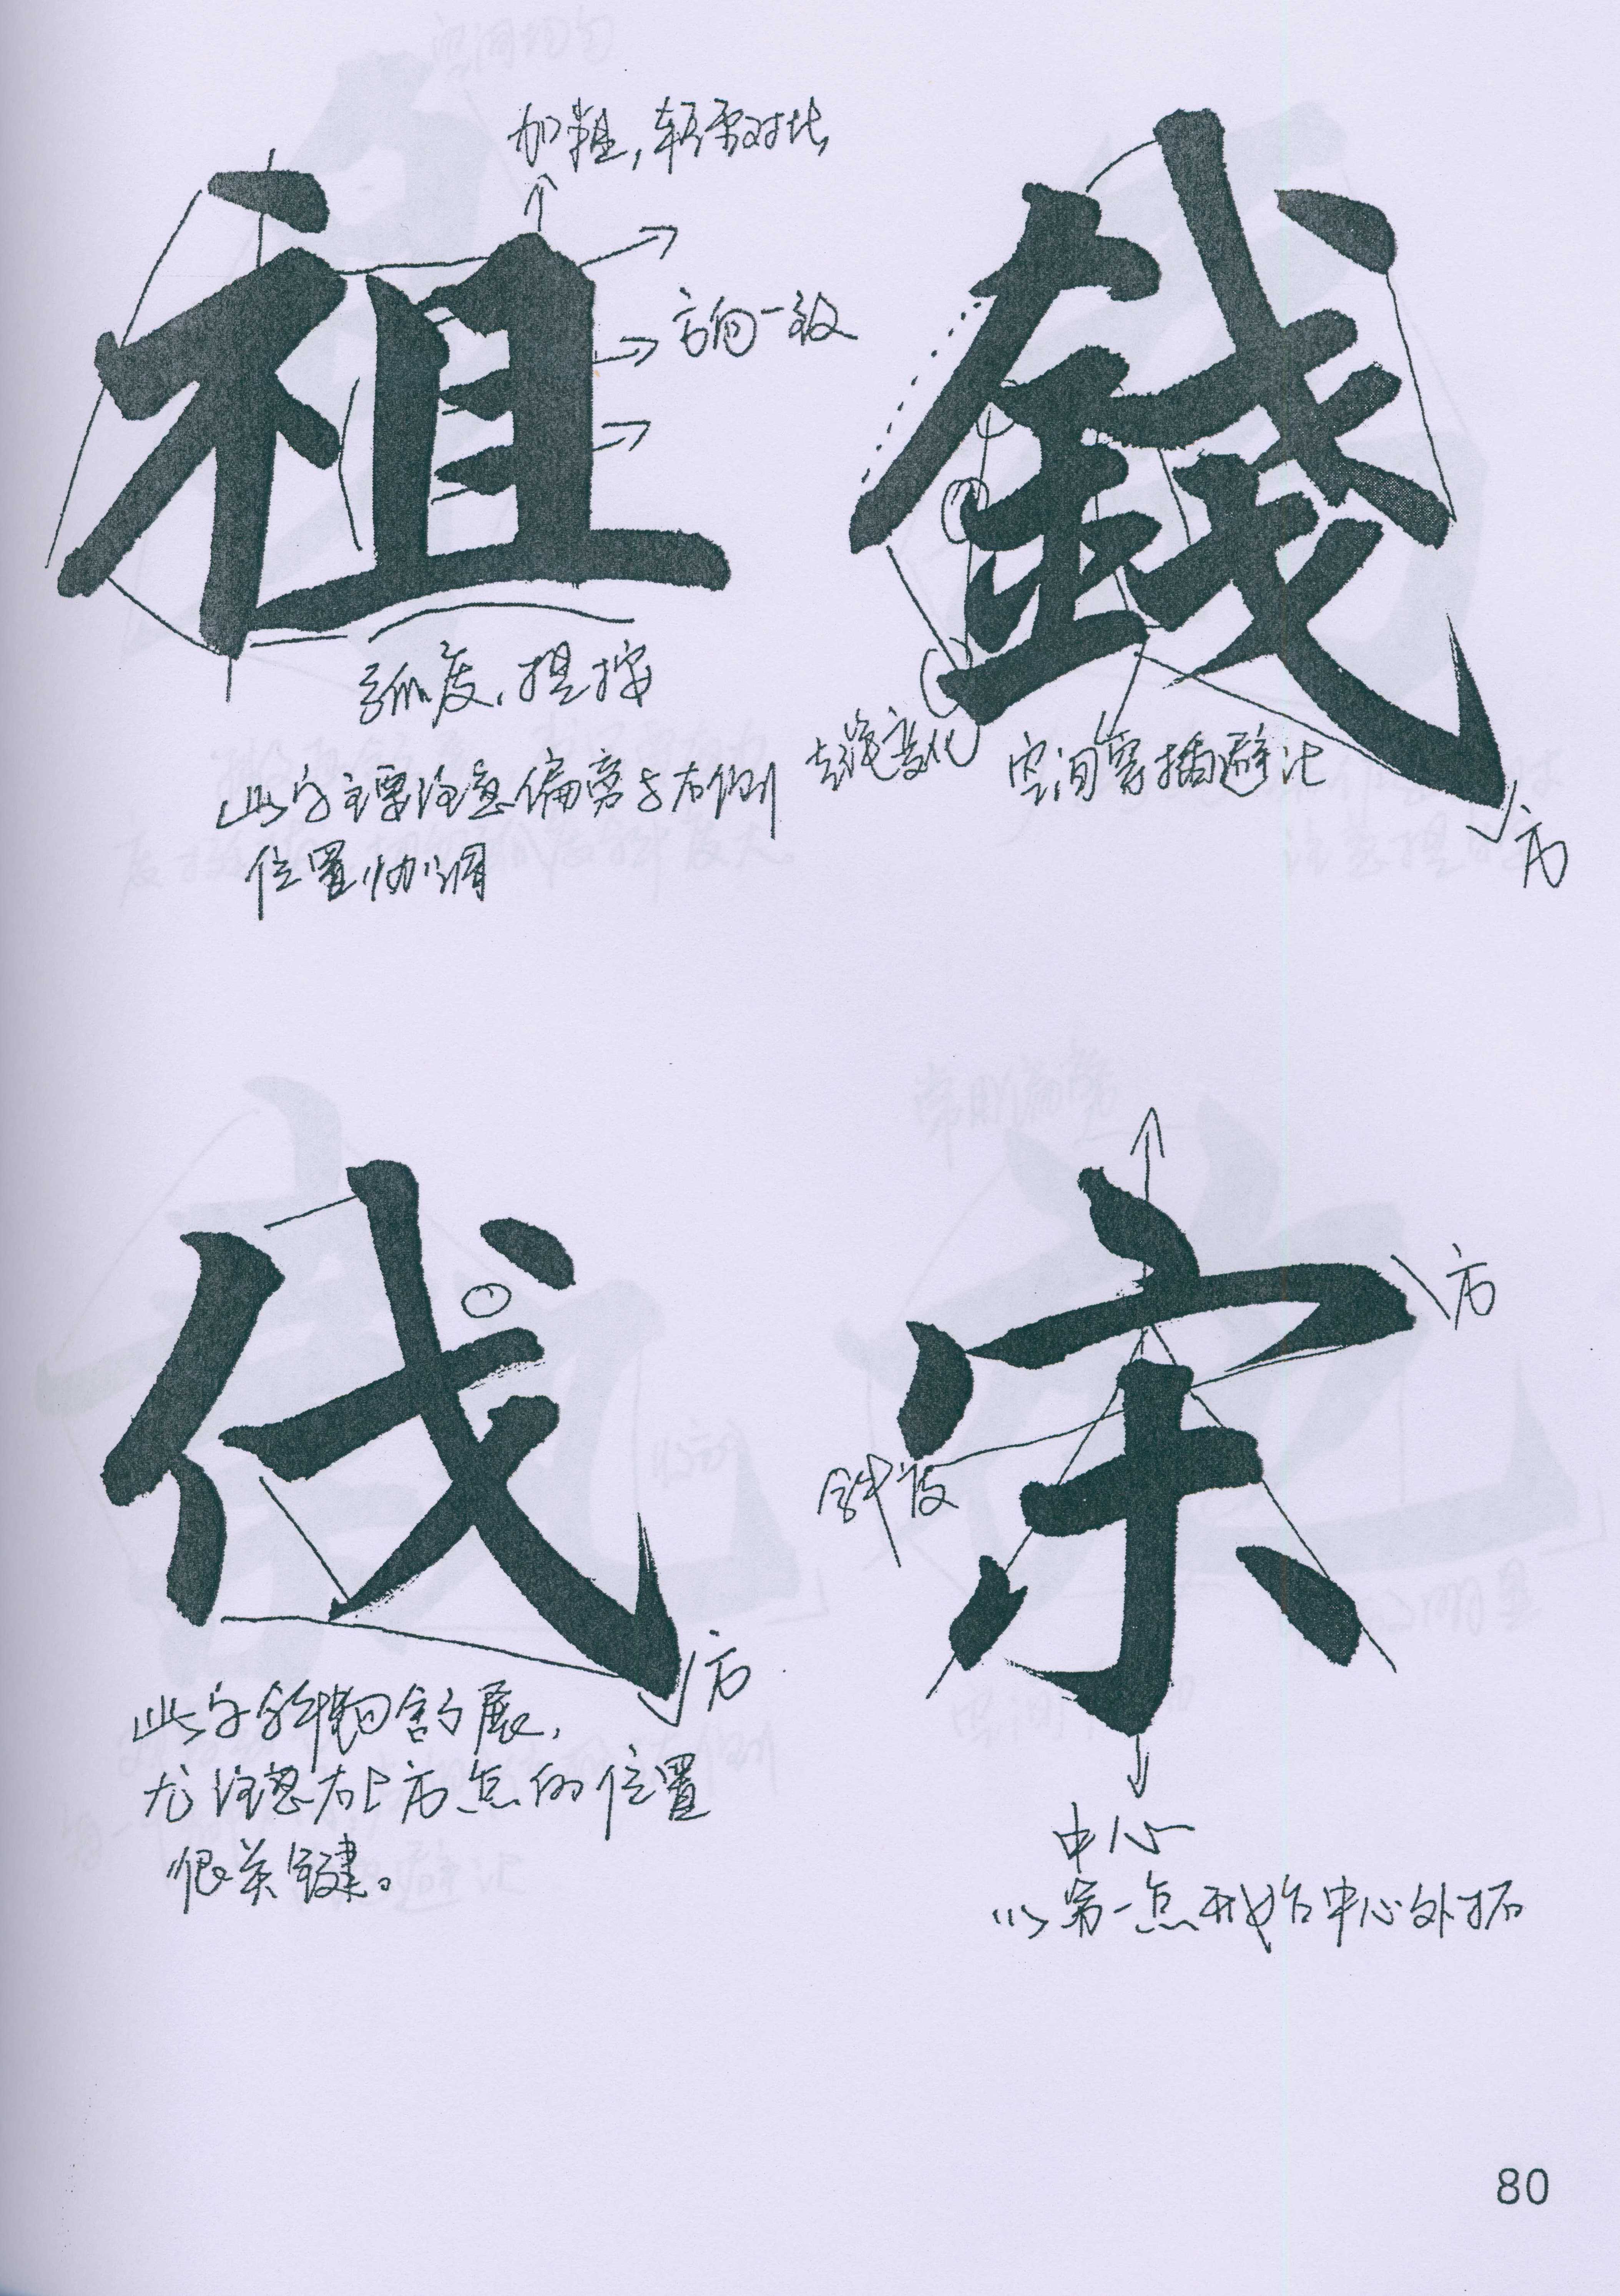 加粗,轻重对比
祖
方向一致
弧度,提按
此字主要注意偏旁与右侧
位置协调
錢
起笔变化
空间穿插避让
方
伐
方
此字斜勾舒展,
尤注意右上方点的位置
很关键。
宋
方
斜度
中心
以第一点开始中心外拓
80